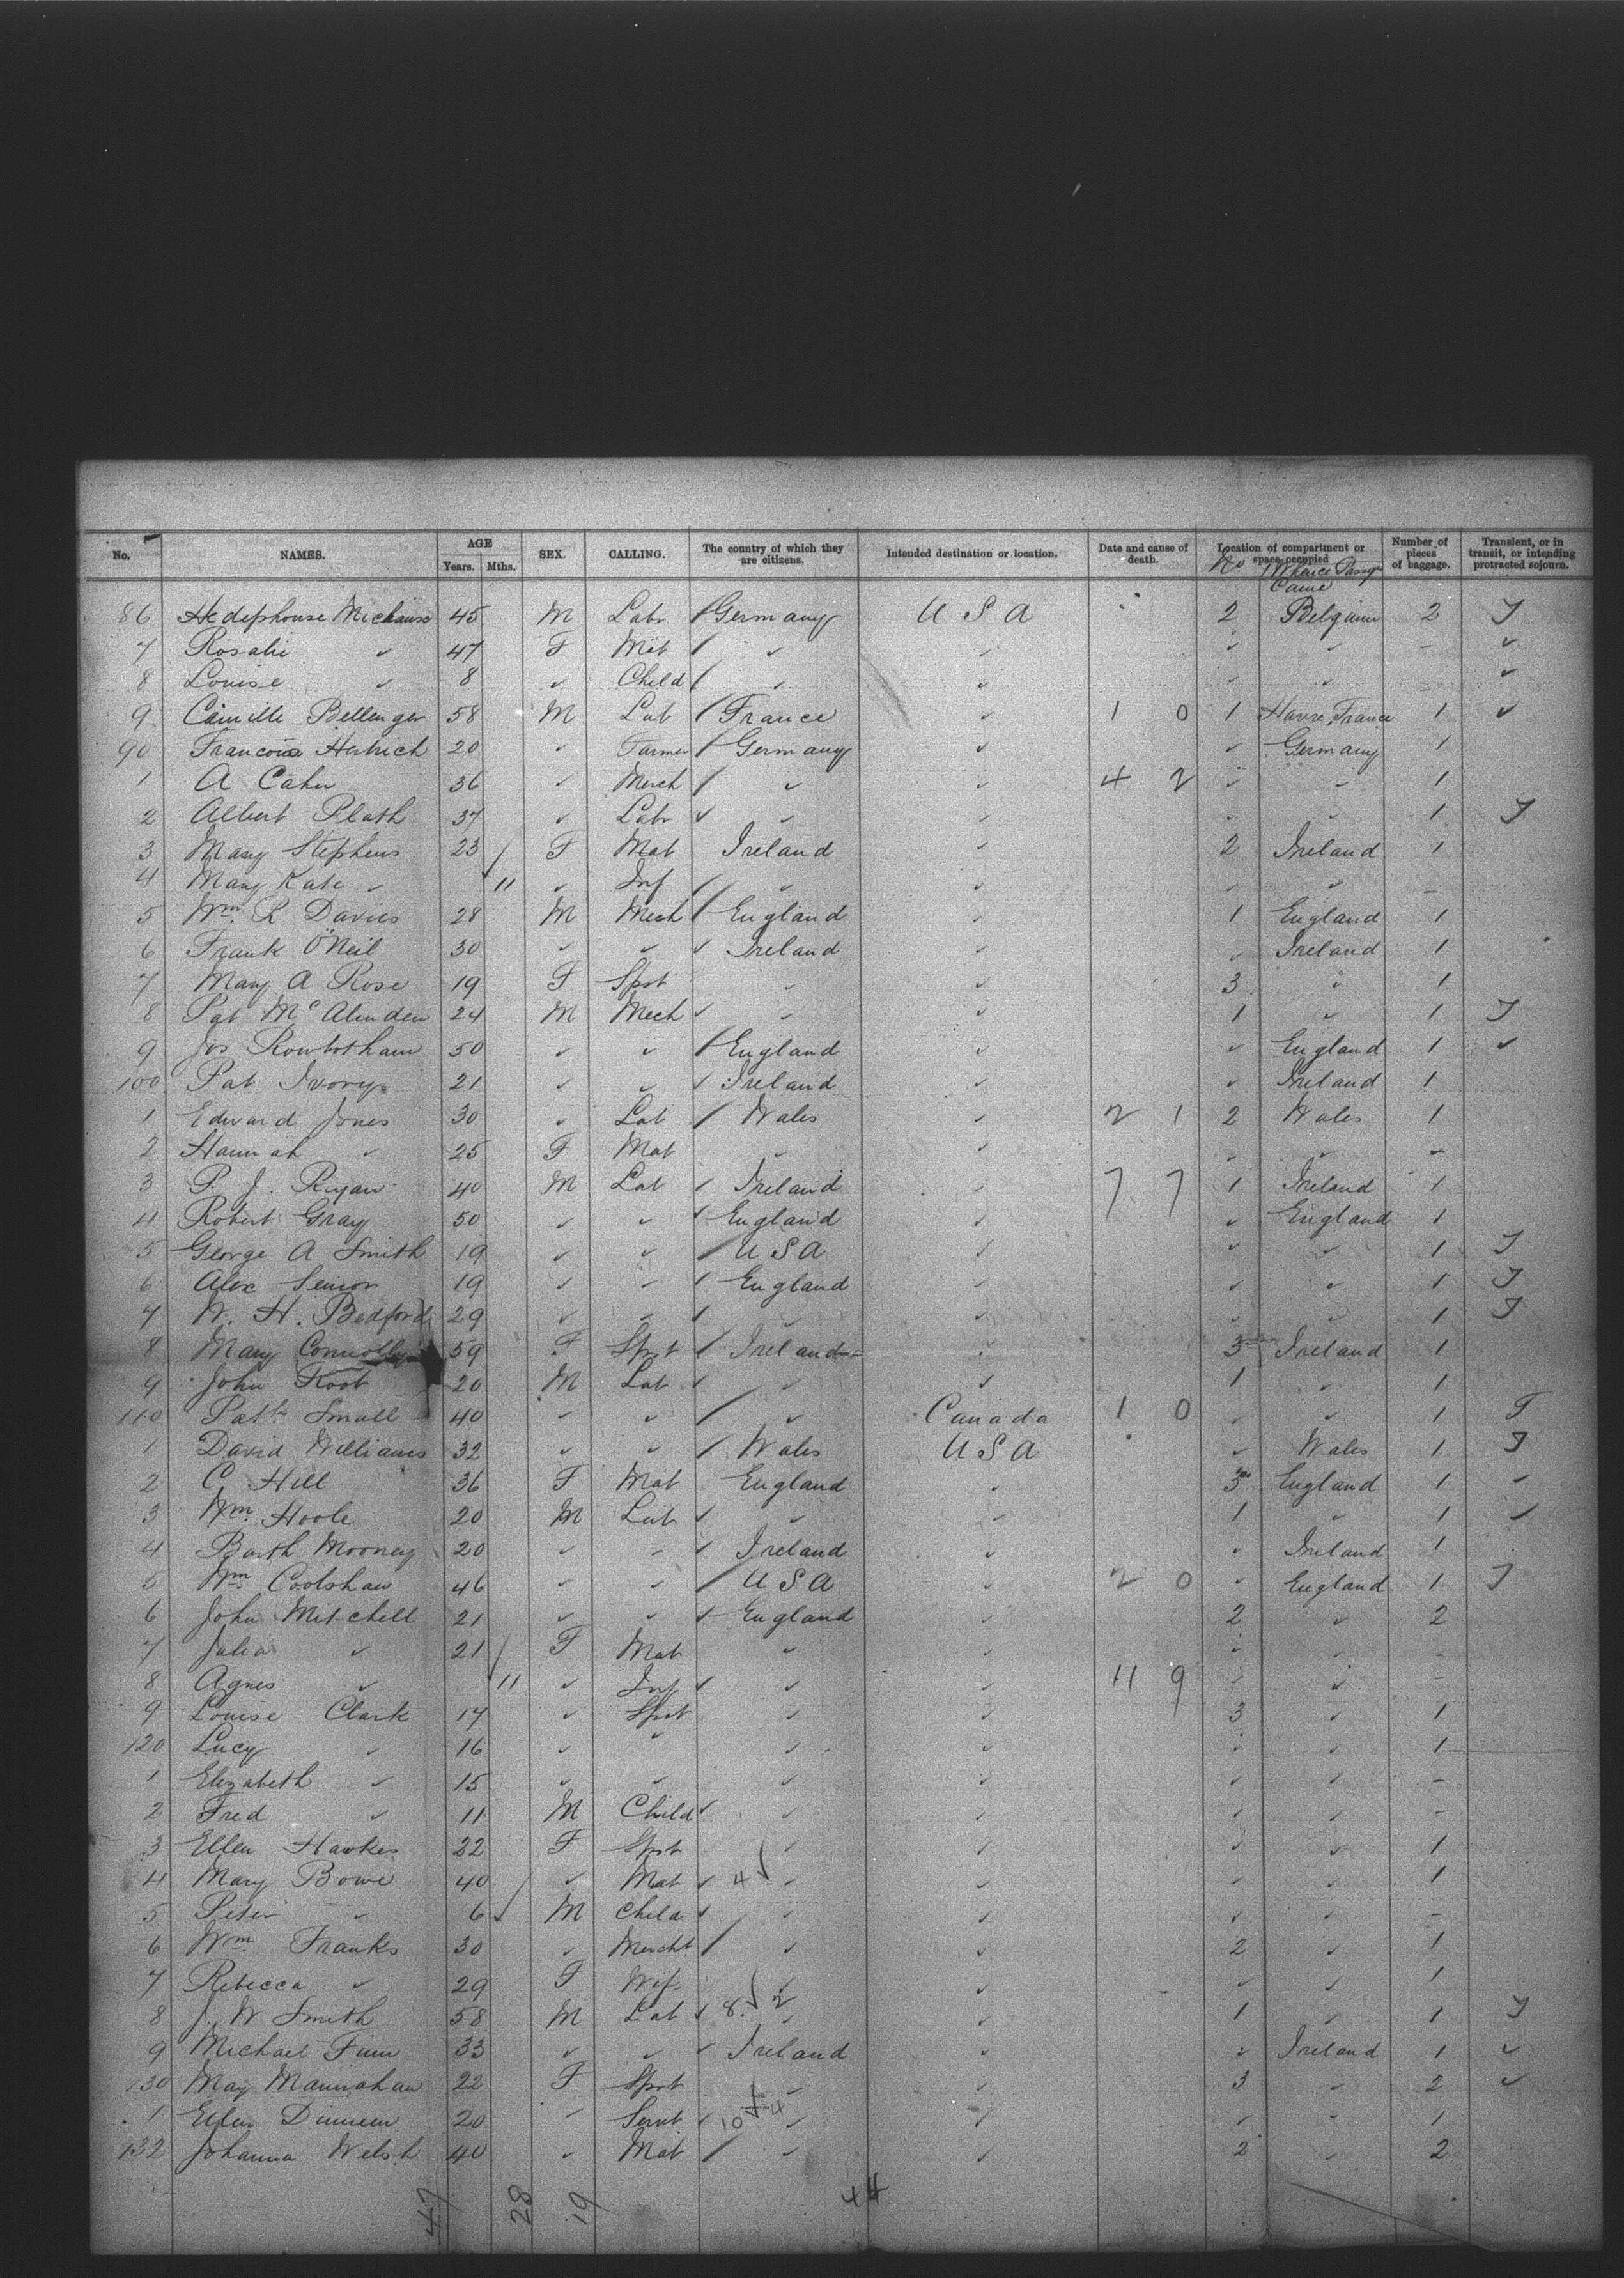 No. NAMES. AGE Years. Mths. SEX. CALLING. The country of which they are citizens. Intended destination or location. Date and cause of death. Location of compartment or space occupied No Whence Passgr Came Number of pieces of baggage. Transient, or in transit, or intending protracted sojourn.
86 45 M Labr Germany U S A 2 Belgium 2 T
7 Rosalie ✓ 47 F Mat ✓ ✓ ✓ ✓ - ✓
8 Louise ✓ 8 ✓ Child ✓ ✓ ✓ ✓ - ✓
9 Camille Bellenger 58 M Lab France ✓ 1 0 1 Havre France 1 ✓
90 20 ✓ Farmer Germany ✓ ✓ Germany 1
1 A Cahn 36 ✓ Merch ✓ ✓ 4 2 ✓ ✓ 1
2 Albert Plath 37 ✓ Labr ✓ ✓ ✓ ✓ 1 T
3 Mary Stephens 23 F Mat Ireland ✓ 2 Ireland 1
4 Mary Kate ✓ 11 ✓ Inf ✓ ✓ ✓ ✓ -
5 Wm. R Davies 28 M Mech England ✓ 1 England 1
6 Frank O'Neil 30 ✓ ✓ ✓ Ireland ✓ ✓ Ireland 1
7 Mary A Rose 19 F Spst ✓ ✓ 3 ✓ 1
8 Pat McAlinden 24 M Mech ✓ ✓ ✓ 1 ✓ 1 T
9 Jos Rowbotham 50 ✓ ✓ England ✓ ✓ England 1 ✓
100 Pat Ivory 21 ✓ ✓ ✓ Ireland ✓ ✓ Ireland 1
1 Edward Jones 30 ✓ Lab Wales ✓ 2 1 2 Wales 1
2 Hannah ✓ 25 F Mat ✓ ✓ ✓ ✓ -
3 P. J. Ryan 40 M Lab Ireland ✓ 7 7 1 Ireland 1
4 Robert Gray 50 ✓ ✓ England ✓ ✓ England 1
5 George A Smith 19 ✓ ✓ U S A ✓ ✓ ✓ 1 T
6 Alex Senior 19 ✓ ✓ England ✓ ✓ ✓ 1 T
7 W. H. Bedford 29 ✓ ✓ ✓ ✓ ✓ ✓ 1 T
8 Mary Connolly 59 F Spst Ireland ✓ 3 Ireland 1
9 John 20 M Lab ✓ ✓ ✓ 1 ✓ 1
110 Patk Small 40 ✓ ✓ ✓ Canada 1 0 ✓ ✓ 1 T
1 David Williams 32 ✓ ✓ Wales U S A ✓ Wales 1 T
2 C Hill 36 F Mat England ✓ 3 England 1 ✓
3 Wm. Hoole 20 M Lab ✓ ✓ ✓ 1 ✓ 1 ✓
4 Barth Mooney 20 ✓ ✓ ✓ Ireland ✓ ✓ Ireland 1
5 Wm 46 ✓ ✓ U S A ✓ 2 0 ✓ England 1 T
6 John Mitchell 21 ✓ ✓ ✓ England ✓ 2 ✓ 2
7 Julia ✓ 21 F Mat ✓ ✓ ✓ ✓ -
8 Agnes ✓ 11 ✓ Inf ✓ ✓ ✓ 11 9 ✓ ✓ -
9 Louise Clark 17 ✓ Spst ✓ ✓ 3 ✓ 1
120 Lucy ✓ 16 ✓ ✓ ✓ ✓ ✓ ✓ 1
1 Elizabeth ✓ 15 ✓ ✓ ✓ ✓ ✓ ✓ -
2 Fred ✓ 11 M Child ✓ ✓ ✓ ✓ ✓ -
3 Ellen Hawkes 22 F Spst ✓ ✓ ✓ ✓ 1
4 Mary Bowe 40 ✓ Mat ✓ 4 ✓ ✓ ✓ ✓ 1
5 Peter ✓ 6 M Child ✓ ✓ ✓ ✓ ✓ -
6 Wm Franks 30 ✓ Mercht ✓ ✓ 2 ✓ 1
7 Rebecca ✓ 29 F Wife ✓ ✓ ✓ ✓ 1
8 J. W Smith 58 M Lab ✓ 8 2 ✓ ✓ 1 ✓ 1 T
9 Michael Finn 33 ✓ ✓ ✓ Ireland ✓ ✓ Ireland 1 ✓
130 May Mannahan 22 F Spst ✓ ✓ 3 ✓ 2 ✓
1 Ellen Dinneen 20 ✓ Servt ✓ 10 4 ✓ ✓ ✓ ✓ 1
132 Johanna Welsh 40 ✓ Mat ✓ ✓ 2 ✓ 2
47 28 19 44